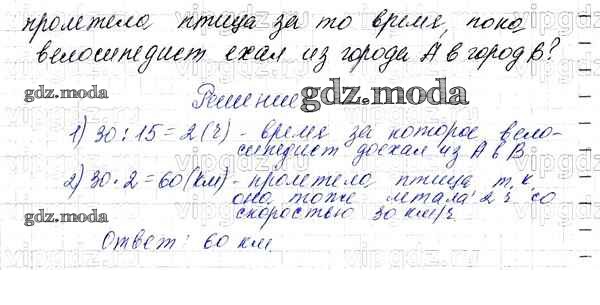 пролетела птица за то время, пока
велосипедист ехал из города А в город В?
Решение
gdz.moda
gdz.moda
1) 30 : 15 = 2 (ч) - время за которое вело-
сипедист доехал из А в В
2) 30 · 2 = 60 (км) - пролетела птица т.к.
она тоже летала 2 ч. со
gdz.moda
скоростью 30 км/ч.
Ответ: 60 км.